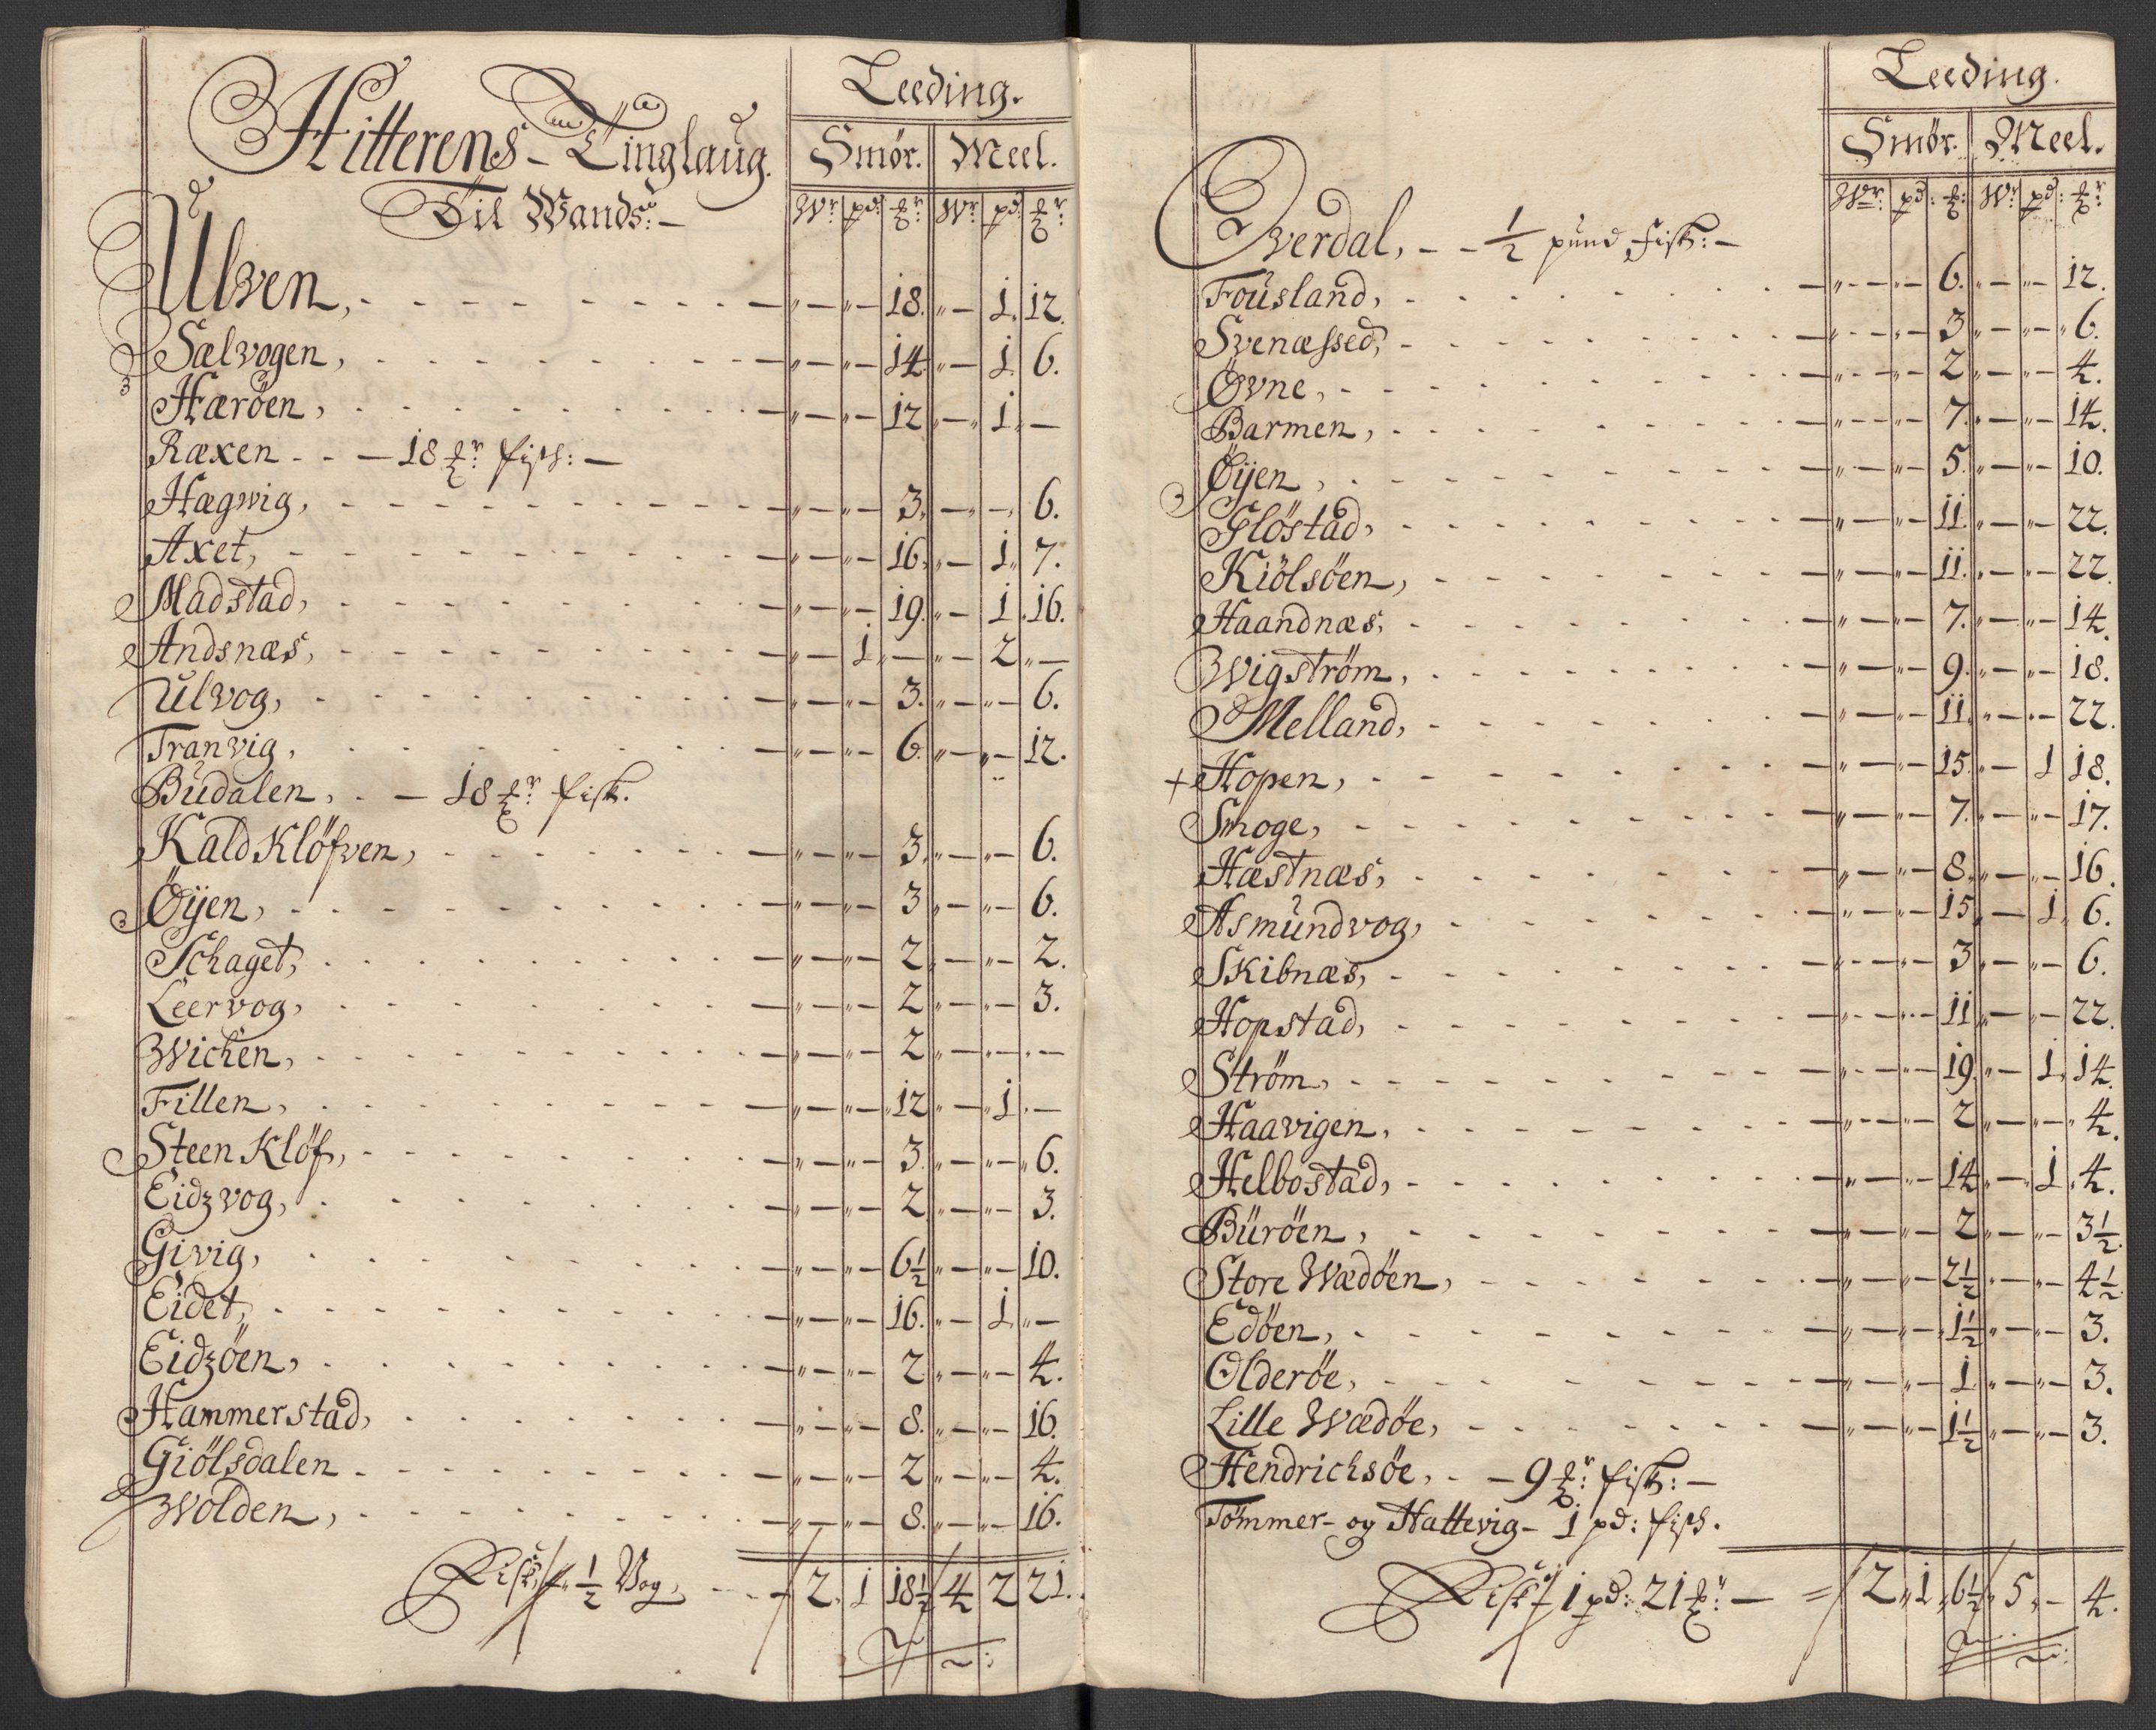 Hitterens Tinglaug.
Til Wands:
Leeding.
Smör. Meel.
Wr: pd: ℔r: Wr: pd: ℔r:
Ulven, - - - „ — „ — 18. „ — 1. 12.
Sælvogen, - - - „ — „ — 14. „ — 1. 6.
Hæröen, - - - „ — „ — 12 „ — 1. —
Ræxen - - — 18 ℔r: fisk: —
Hægwig, - - - „ — „ — 3. — — 6.
Axet, - - - „ — „ — 16. „ — 1. 7.
Madstad, - - - „ — „ — 19. „ — 1. 16.
Andsnæs, - - - „ — 1. „ — „ — 2 „ —
Ulvog, - - - „ — „ — 3. „ — „ — 6.
Tranvig, - - - „ — „ — 6. „ — „ — 12.
Budalen, - — 18 ℔r fisk.
Kald Klöfven, - - - „ — „ — 3. „ — „ — 6.
Öijen, - - - „ — „ — 3 „ — „ — 6.
Schaget, - - - „ — „ — 2 „ — „ — 2.
Leervog, - - - „ — „ — 2 „ — „ — 3.
Wichen, - - - „ — „ — 2 „ — „ — „ —
Fillen, - - - „ — „ — 12 „ — „ 1. —
Steen Klöf, - - - „ — „ — 3. „ — „ — 6.
Eidzvog, - - - „ — „ — 2. „ — „ — 3.
Givig, - - - „ — „ — 6½ „ — „ — 10.
Eidet, - - - „ — „ — 16. „ — 1. „ —
Eidzöen, - - - „ — „ — 2 „ — „ — 4.
Hammerstad, - - - „ — „ — 8. „ — „ — 16.
Giölsdalen - - - „ — „ — 2 „ — „ — 4.
Wolden, - - - „ — „ — 8. „ — „ — 16.
Fisk ½ Vog, - - - 2. 1 18½ 4 2 21.
Leeding.
Smör. Meel.
Wr: pd: ℔: Wr: pd: ℔r:
Overdal, - - ½ pund fisk: —
Fousland, - - - „ — „ — 6. „ — „ — 12.
Svenæssed, - - - „ — „ — 3 „ — „ — 6.
Övne, - - - „ — „ — 2 „ — „ — 4.
Barmen, - - - „ — „ — 7. „ — „ — 14.
Öijen, - - - „ — „ — 5. „ — „ — 10.
Glöstad, - - - „ — „ — 11. „ — „ — 22.
Kiölsöen, - - - „ — „ — 11. „ — „ — 22.
Haandnæs, - - - „ — „ — 7. „ — „ — 14.
Wigström, - - - „ — „ — 9. „ — „ — 18.
Melland, - - - „ — „ — 11. „ — „ — 22.
+ Hopen, - - - „ — „ — 15. „ — 1 18.
Smoge, - - - „ — „ — 7. „ — „ — 17.
Hæstnæs, - - - „ — „ — 8. „ — „ — 16.
Asmundvog, - - - „ — „ — 15 „ — 1. 6.
Skibnæs, - - - „ — „ — 3 „ — „ — 6.
Hopstad, - - - „ — „ — 11 „ — „ — 22.
Ström, - - - „ — „ — 19. „ — 1. 14.
Haavigen, - - - „ — „ — 2 „ — „ — 4.
Helbostad, - - - „ — „ — 14 „ — 1. 4.
Buröen, - - - „ — „ — 2 „ — „ — 3½.
Store Wædöen, - - - „ — „ — 2½ „ — „ — 4½
Edöen, - - - „ — „ — 1½ „ — „ — 3.
Olderöe, - - - „ — „ — 1. „ — „ — 3.
Lille Wædöe, - - - „ — „ — 1½ „ — „ — 3.
Hendrichsöe, - — 9 ℔r: fisk: —
Tömmer- og Hattevig - 1 pd: fisk.
Fisk 1 pd: 21 ℔r: — 2 „ 1 „ 6½ „ 5 „ — 4.